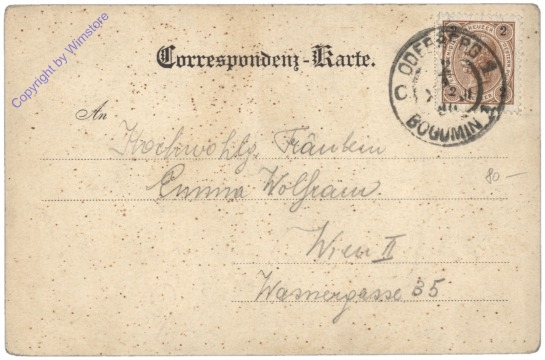 Copyright by Wimstore
Correspondenz-Karte.
2 KREUZER 2
ODERBERG
BOGUMIN
An
Hochwohlg. Fräulein
Emma Wolfram.
Wien II
80 —
Wasnergasse 35